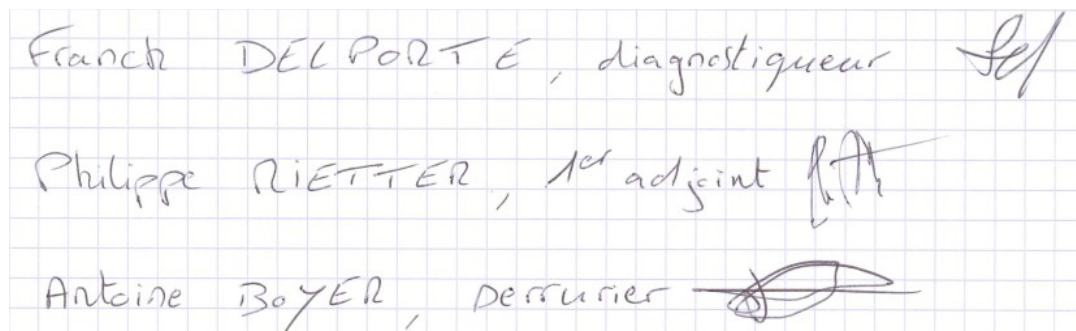 Franck DELPORTE, diagnostiqueur
Philippe RIETTER, 1er adjoint
Antoine BOYER, serrurier